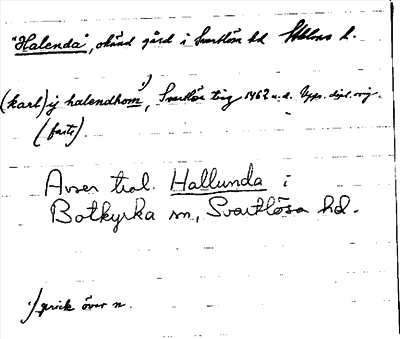 "Halenda", okänd gård i Svartlösa hd Sthlms l.
(karl) ij halendhom¹⁾, Svartlösa ting 1462 u.d. Upps. dipl. orig.
(forts).
Avser trol. Hallunda i
Botkyrka sn, Svartlösa hd.
¹⁾ prick över n.